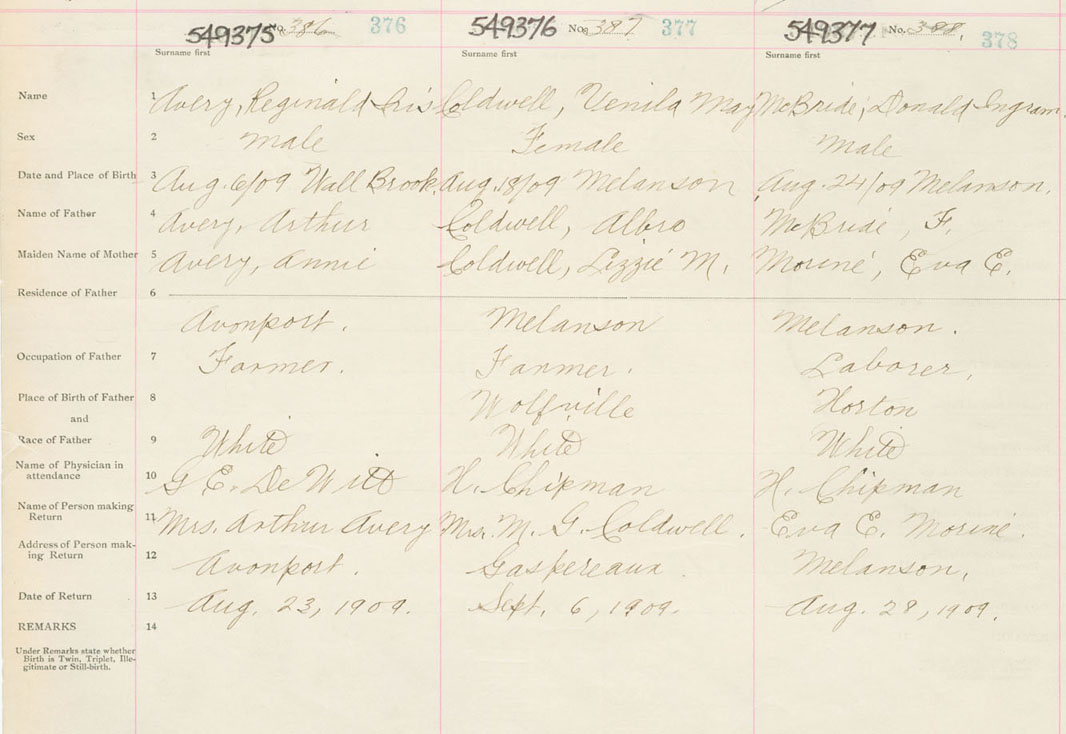 549375 No. 386 376 549376 No. 387 377 549377 No. 388. 378
Surname first Surname first Surname first
Name 1 Avery, Reginald Coldwell, Venila May McBride, Donald Ingram.
Sex 2 Male Female Male
Date and Place of Birth 3 Aug. 6/09 Wall Brook. Aug. 18/09 Melanson Aug. 24/09 Melanson.
Name of Father 4 Avery, Arthur Coldwell, Albro McBride, F.
Maiden Name of Mother 5 Avery, Annie Coldwell, Lizzie M. Morine, Eva E.
Residence of Father 6
Avonport. Melanson Melanson.
Occupation of Father 7 Farmer. Farmer. Laborer,
Place of Birth of Father 8 Wolfville Horton
and
Race of Father 9 White White White
Name of Physician in
attendance 10 G E. DeWitt H. Chipman H. Chipman
Name of Person making
Return 11 Mrs. Arthur Avery Mrs. M. G. Coldwell. Eva E. Morine.
Address of Person mak-
ing Return 12 Avonport. Gaspereaux Melanson,
Date of Return 13 Aug. 23, 1909. Sept. 6, 1909. Aug. 29, 1909.
REMARKS 14
Under Remarks state whether
Birth is Twin, Triplet, Ille-
gitimate or Still-birth.